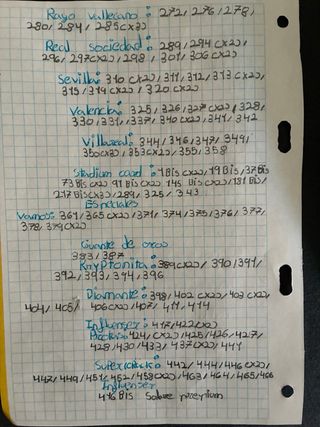 Rayo vallecano: 272, 276, 278,
280, 284, 285(x2)
Real sociedad: 289, 294(x2),
296, 297(x2), 298, 301, 306(x2)
Sevilla: 310(x2), 311, 312, 313(x2),
315, 319(x2), 320(x2)
Valencia: 325, 326, 327(x2), 328,
330, 331, 337, 340(x2), 341, 342
Villareal: 344, 346, 347, 349,
350(x3), 353(x2), 355, 358
Stadium card: 1 Bis(x2), 19 Bis, 37 Bis
73 Bis(x2) 91 Bis(x2) 145 Bis(x2) 181 Bis,
217 Bis(x2), 289, 325, 343
Especiales
Vamos: 361, 365(x2), 371, 374, 375, 376, 377,
378, 379(x2)
Guante de oro:
383, 387
Kryptonita: 389(x2), 390, 391,
392, 393, 394, 396
Diamante: 398, 402(x2), 403(x2),
404, 405, 406(x2), 407, 411, 414
Influencer: 417, 422(x2)
424(x2), 425, 426, 427,
428, 430, 433, 437(x2), 441
442, 444, 446(x2),
447, 449, 451, 452, 458(x2), 463, 464, 465, 466
Influencer
416 BIS Sobre premium